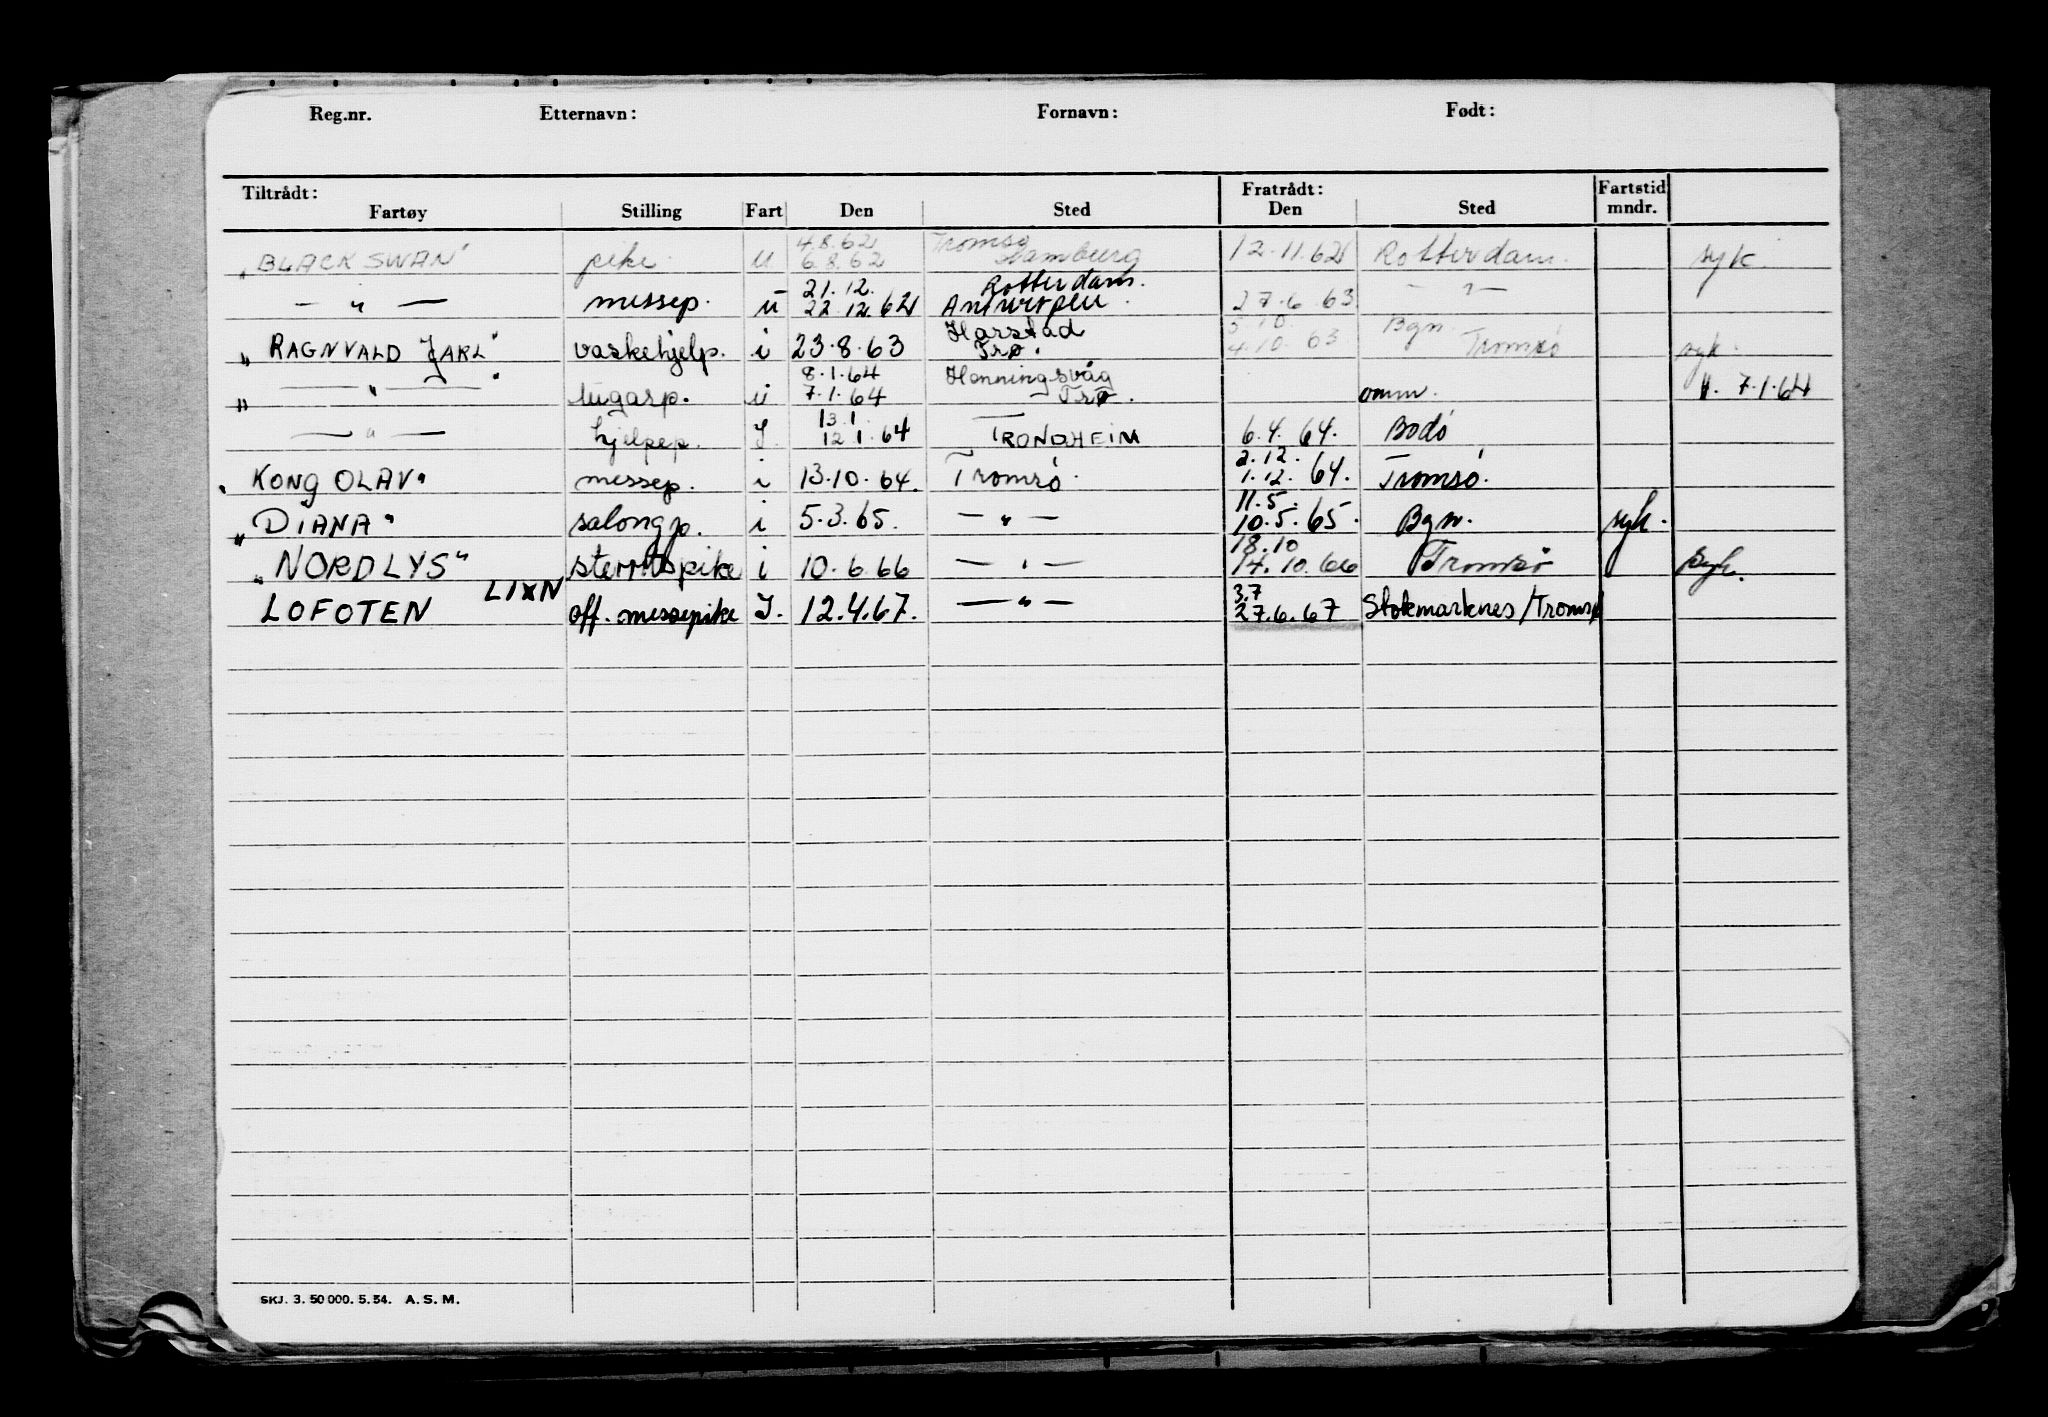 Reg.nr. Etternavn: Fornavn: Født:
Tiltrådt: Fratrådt: Fartstid
Fartøy Stilling Fart Den Sted Den Sted mndr.
4.8.62 Tromsø
„BLACK SWAN" pike u 6.8.62 Hamburg 12.11.62 Rotterdam. syk.
21.12. Rotterdam.
— " — messep. u 22.12.62 Antwerpen. 27.6.63 — " —
Harstad 5.10. Bgn.
„RAGNVALD JARL" vaskehjelp. i 23.8.63 Trø. 4.10.63 Tromsø syk.
8.1.64 Honningsvåg
„ — " — " lugarp. i 7.1.64 Trø. omm. 7.1.64
13.1.
— " — hjelpep. I. 12.1.64 TRONDHEIM 6.4.64. Bodø
2.12.
„KONG OLAV" messep. i 13.10.64. Tromsø. 1.12.64. Tromsø.
11.5.
„DIANA" salongp. i 5.3.65. — " — 10.5.65. Bgn. syk.
18.10
„NORDLYS" i 10.6.66 — " — 14.10.66 Tromsø syk.
LIXN 3.7
LOFOTEN off. messepike I. 12.4.67. — " — 27.6.67 Stokmarknes/Tromsø
SKJ. 3. 50 000. 5. 54. A. S. M.